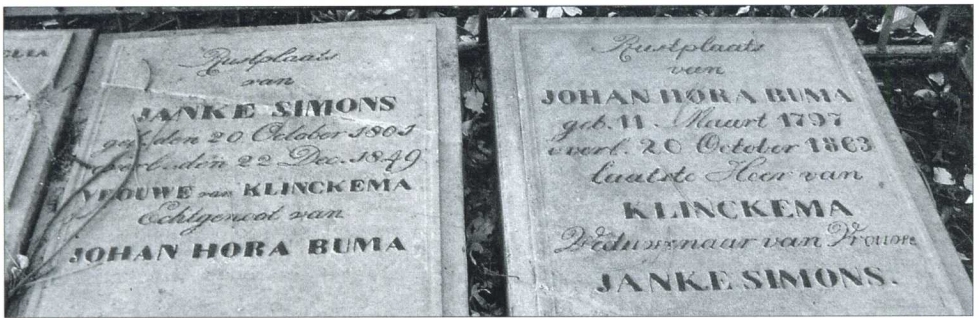 GLIA
Rustplaats
van
JANKE SIMONS
geb. den 20 October 1801
overl. den 22 Dec. 1849
VROUWE van KLINCKEMA
Echtgenoot van
JOHAN HORA BUMA
Rustplaats
van
JOHAN HORA BUMA
geb. 11 Maart 1797
overl. 20 October 1863
laatste Heer van
KLINCKEMA
Weduwenaar van Vrouwe
JANKE SIMONS.